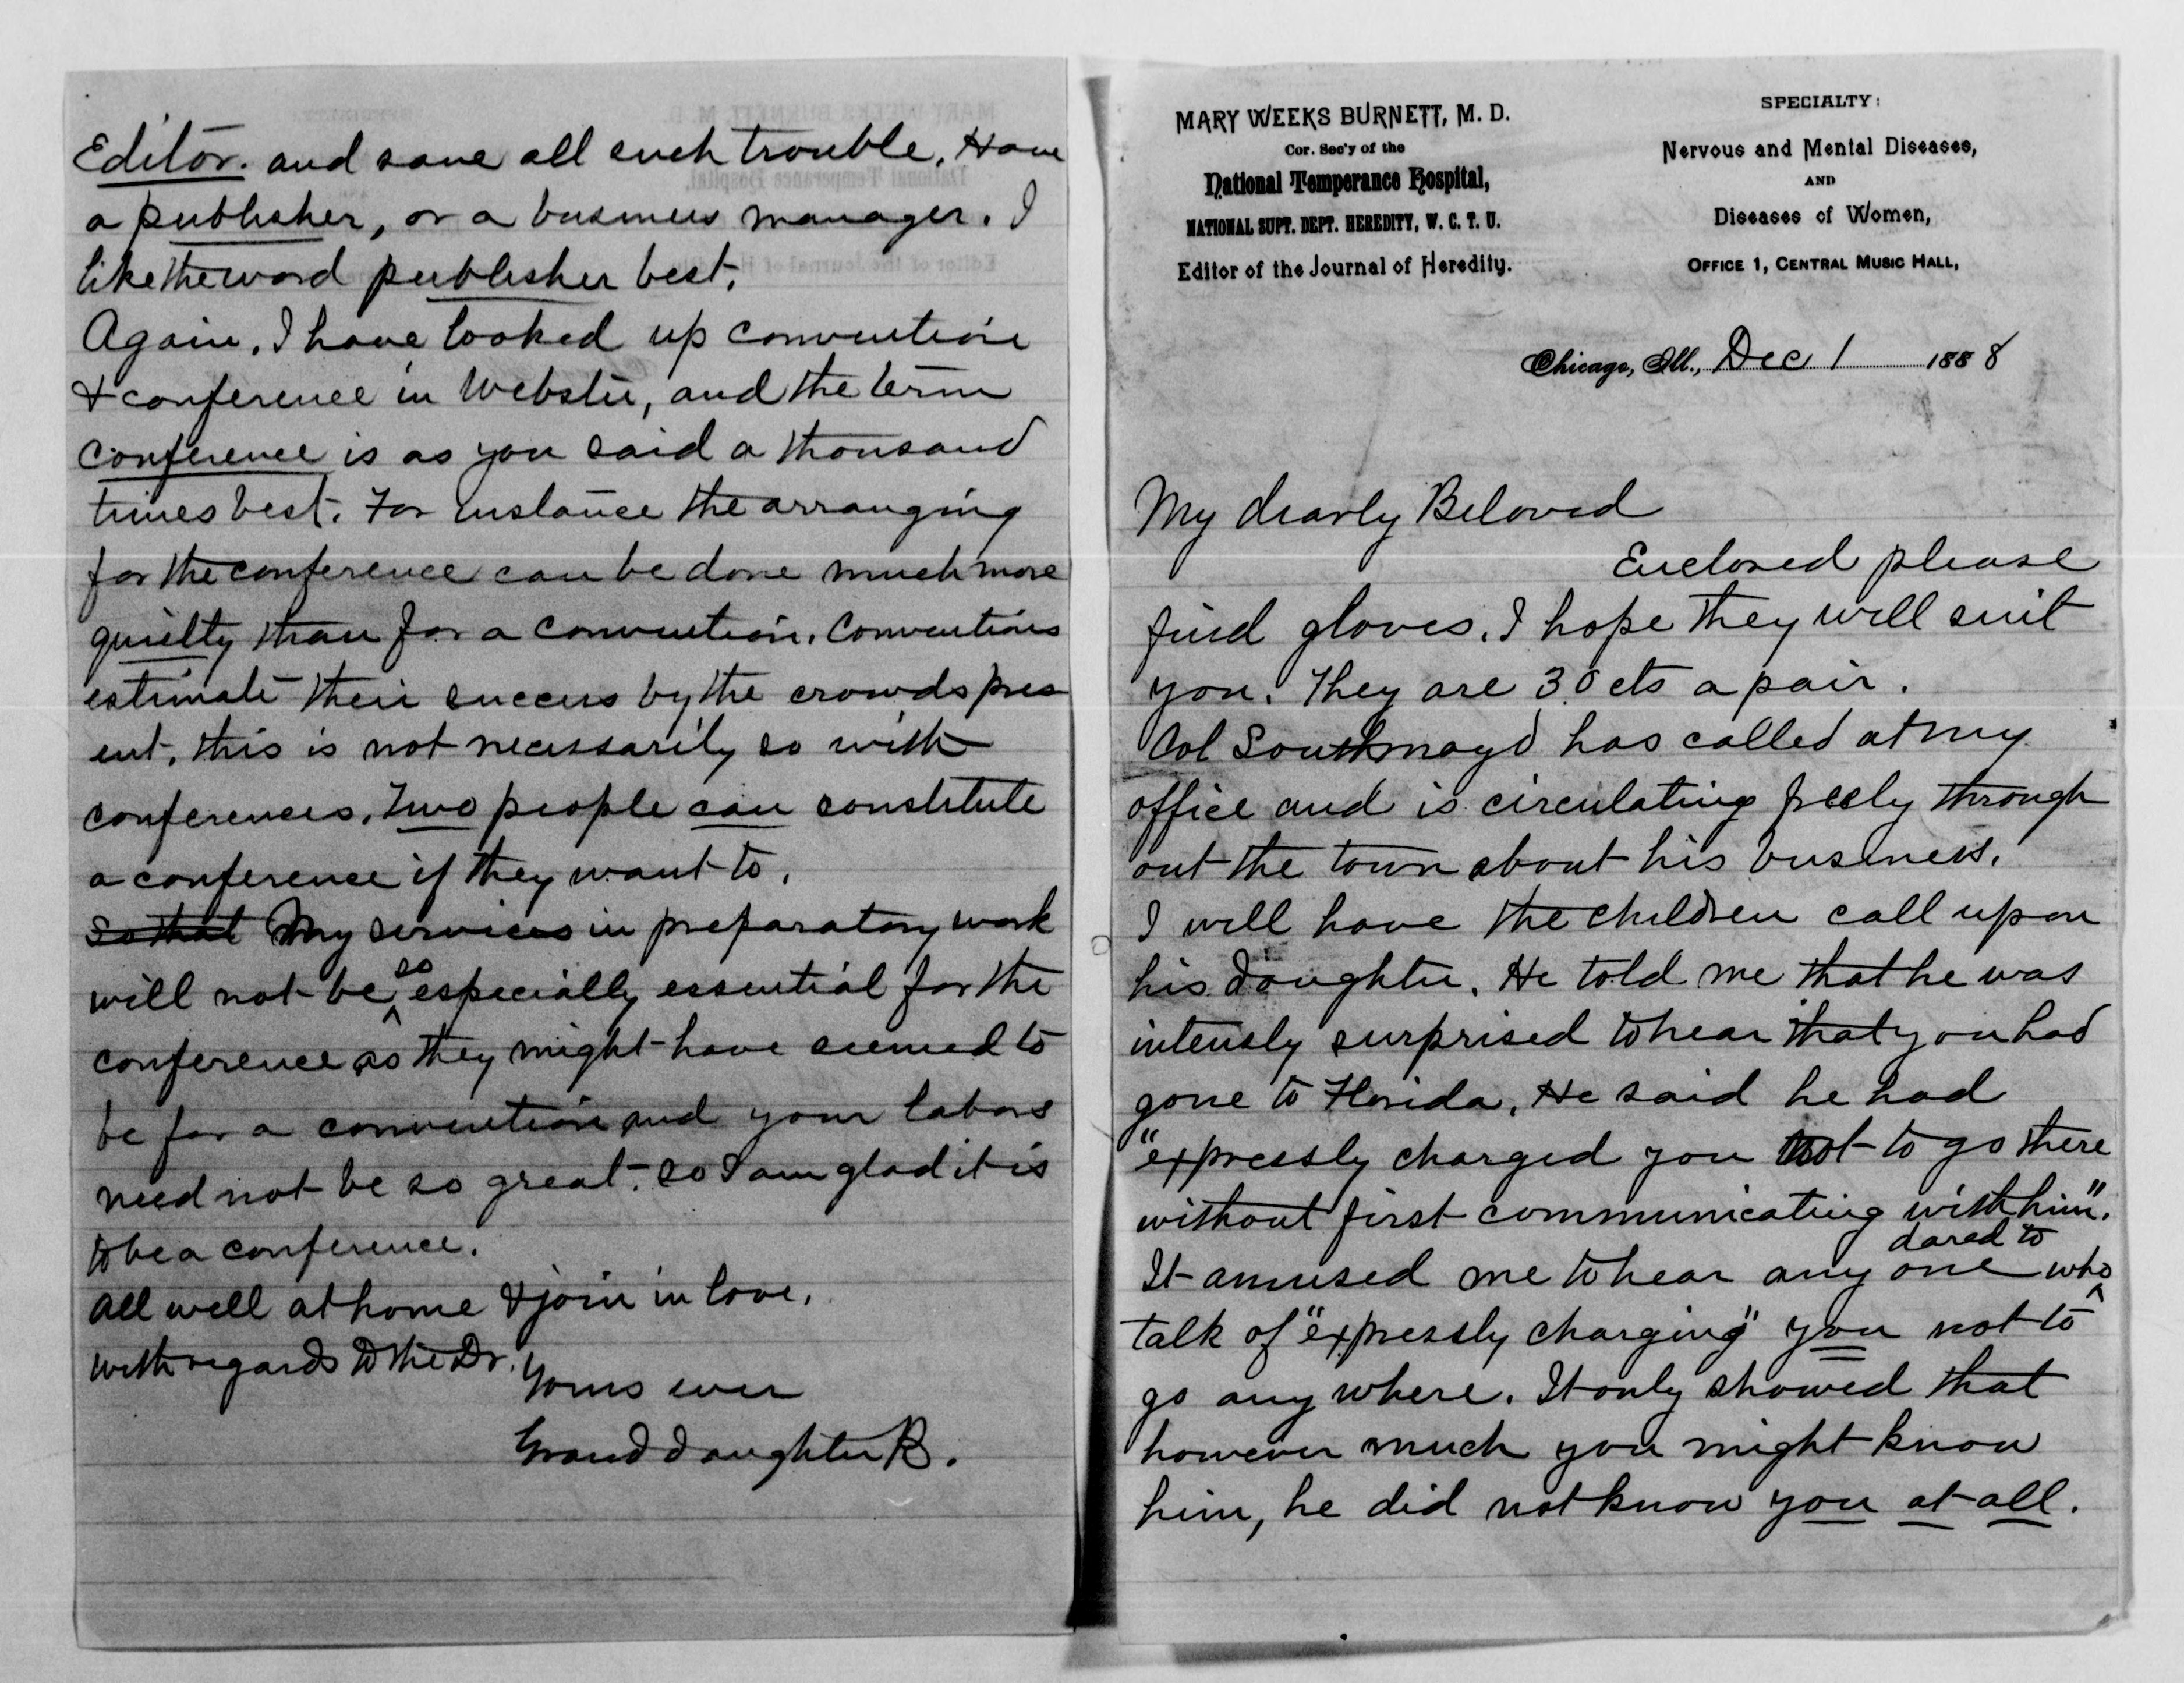 MARY WEEKS BURNETT, M. D.
Cor. Sec'y of the
National Temperance Hospital,
NATIONAL SUPT. DEPT. HEREDITY, W. C. T. U.
Editor of the Journal of Heredity.
SPECIALTY:
Nervous and Mental Diseases,
AND
Diseases of Women,
OFFICE 1, CENTRAL MUSIC HALL,
Chicago, Ill., Dec 1 1888
My dearly Beloved
Enclosed please
find gloves. I hope they will suit
you. They are 30 cts a pair.
Col Southmayd has called at my
office and is circulating freely through
out the town about his business.
I will have the children call upon
his daughter. He told me that he was
intensly surprised to hear that you had
gone to Florida. He said he had
"expressly charged you not to go there
without first communicating with him".
It amused me to hear any one who
dared to
talk of "expressly charging" you not to
go any where. It only showed that
however much you might know
him, he did not know you at all.
Editor. and save all such trouble. Have
a publisher, or a business manager. I
like the word publisher best.
Again, I have looked up convention
& conference in Webster, and the term
conference is as you said a thousand
times best. For instance the arranging
for the conference can be done much more
quietly than for a convention. Conventions
estimate their success by the crowds pres
ent, this is not necessarily so with
conferences. Two people can constitute
a conference if they want to.
So that My services in preparatory work
will not be so especially essential for the
conference as they might have seemed to
be for a convention and your labors
need not be so great. so I am glad it is
to be a conference.
All well at home & join in love.
with regards to the Dr.
Yours ever
Grand daughter B.